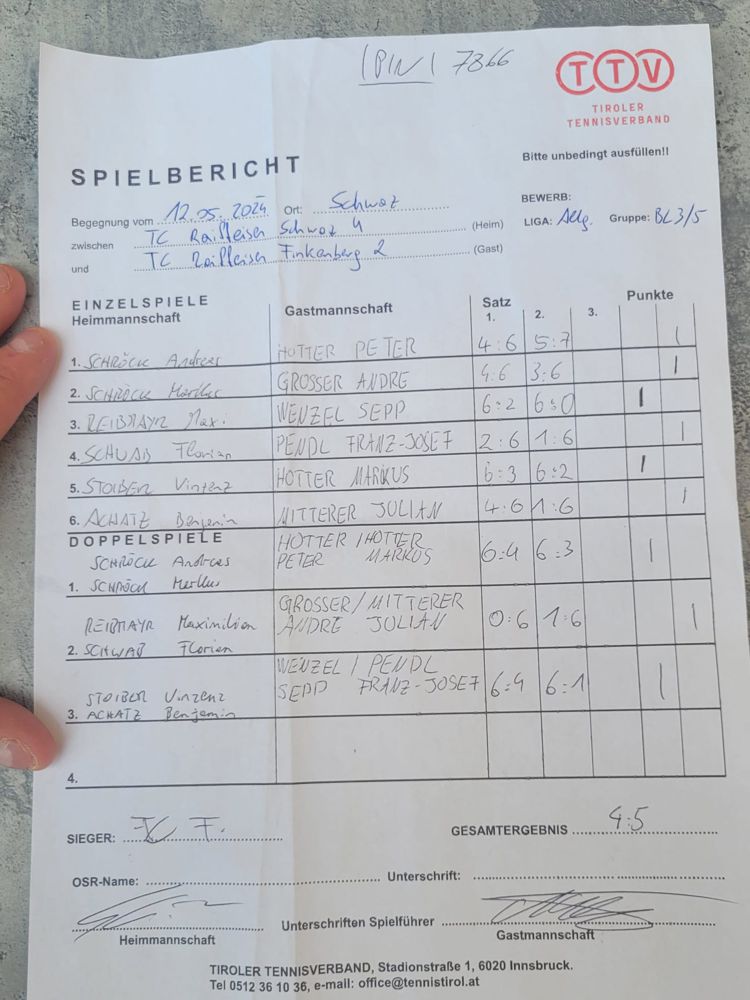 (PIN) 7866
TTV
TIROLER
TENNISVERBAND
SPIELBERICHT
Bitte unbedingt ausfüllen!!
Begegnung vom 12.05.2024 Ort: Schwaz
BEWERB:
zwischen TC Raiffeisen Schwaz 4 (Heim)
LIGA: Allg. Gruppe: BL3/5
und TC Raiffeisen Finkenberg 2 (Gast)
EINZELSPIELE
Heimmannschaft Gastmannschaft Satz 1. 2. 3. Punkte
1. SCHRÖCK Andreas HOTTER PETER 4:6 5:7 |
2. SCHRÖCK Markus GROSSER ANDRE 4:6 3:6 |
3. REIBMAYR Maxi WENZEL SEPP 6:2 6:0 |
4. SCHWAB Florian PENDL FRANZ-JOSEF 2:6 1:6 |
5. STOIBER Vinzenz HOTTER MARKUS 6:3 6:2 |
6. ACHATZ Benjamin MITTERER JULIAN 4:6 1:6 |
DOPPELSPIELE
SCHRÖCK Andreas HOTTER / HOTTER
1. SCHRÖCK Markus PETER MARKUS 6:4 6:3 |
REIBMAYR Maximilian GROSSER/MITTERER
2. SCHWAB Florian ANDRE JULIAN 0:6 1:6 |
STOIBER Vinzenz WENZEL / PENDL
3. ACHATZ Benjamin SEPP FRANZ-JOSEF 6:4 6:1 |
4.
SIEGER: GESAMTERGEBNIS 4:5
OSR-Name: Unterschrift:
Unterschriften Spielführer
Heimmannschaft Gastmannschaft
TIROLER TENNISVERBAND, Stadionstraße 1, 6020 Innsbruck.
Tel 0512 36 10 36, e-mail: office@tennistirol.at